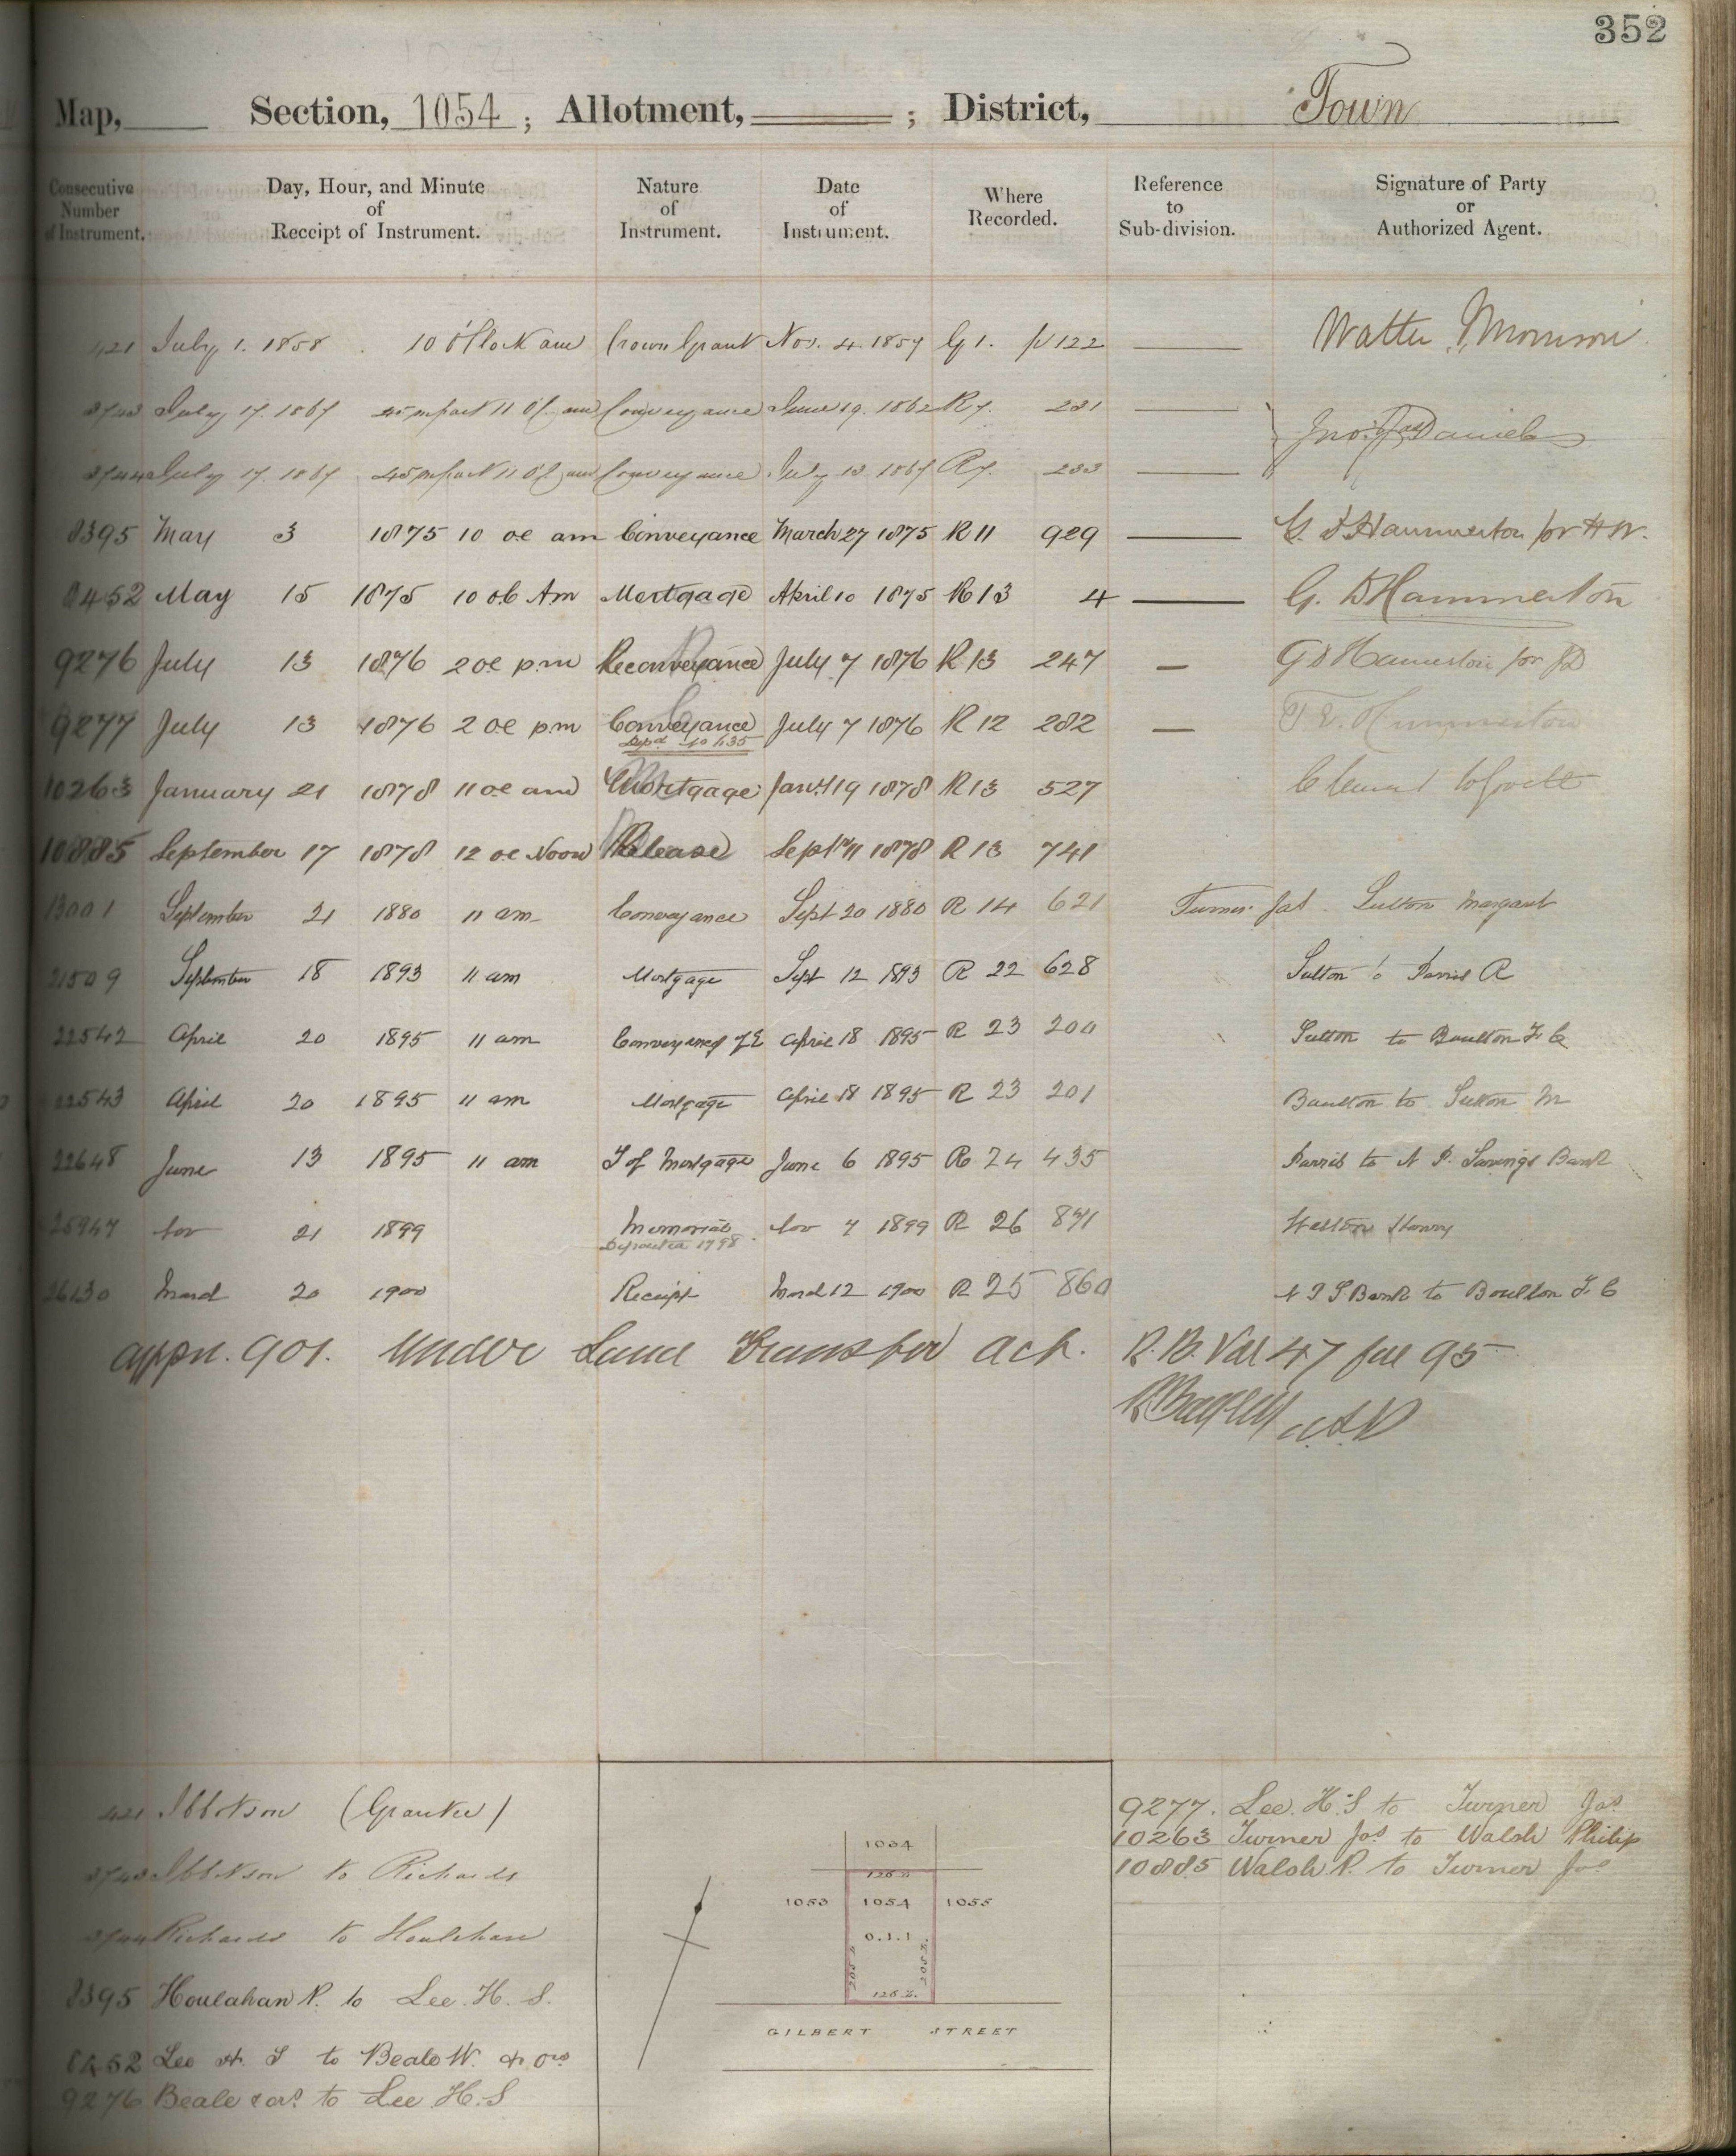 352
Map, Section, 1054 ; Allotment, ; District, Town
Consecutive Number of Instrument. Day, Hour, and Minute of Receipt of Instrument. Nature of Instrument. Date of Instrument. Where Recorded. Reference to Sub-division. Signature of Party or Authorized Agent.
421 July 1. 1858 10 O'Clock am Crown Grant Nov. 4. 1857 G 1. p 122 Walter Morrison
3743 July 17. 1867 45 m past 11 O'C am Conveyance June 19. 1862 R 7. 231 Jno. Daniel
3744 July 17. 1867 45 m past 11 O'C am Conveyance July 13 1867 R 7. 233
8395 May 3 1875 10 oc am Conveyance March 27 1875 R 11 929 G. D Hammerton for H W.
8452 May 15 1875 10 oc Am Mortgage April 10 1875 R 13 4 G. D Hammerton
9276 July 13 1876 2 oc p.m Reconveyance July 7 1876 R 13 247 G D Hammerton for JD
9277 July 13 1876 2 oc pm Conveyance July 7 1876 R 12 282 Hammerton
Depd No 635
10263 January 21 1878 11 oc am Mortgage Jany 19 1878 R 13 527 Clement
10885 September 17 1878 12 oc Noon Release Septr 11 1878 R 13 741
13001 September 21 1880 11 am Conveyance Sept 20 1880 R 14 621 Turner Jas Sutton Margaret
21509 September 18 1893 11 am Mortgage Sept 12 1893 R 22 628 Sutton to Parris R
22542 April 20 1895 11 am Convey ance of E April 18 1895 R 23 200 Sutton to Boulton F C
22543 April 20 1895 11 am Mortgage April 18 1895 R 23 201 Boulton to Sutton M
22648 June 13 1895 11 am T of Mortgage June 6 1895 R 24 435 Parris to N P. Savings Bank
25947 Nov 21 1899 Memorial Nov 7 1899 R 26 841 Weston Henry
Deposited 1798
26130 March 20 1900 Receipt March 12 1900 R 25 860 N P S Bank to Boulton F C
Appn. 901. Under Land Transfer Act. R.B. Vol 47 fol 95
R Bagley A.L.R
421 Ibbotson (Grantee)
3743 Ibbotson to Richards
3744 Richards to Houlahan
8395 Houlahan P. to Lee. H. S.
8452 Lee H. S to Beale W. & ors
9276 Beale & ors to Lee H. S
1034
126 L.
1053 1054 1055
0.1.1
205 L. 205 L.
126 L.
GILBERT STREET
9277. Lee. H. S to Turner Jas
10263 Turner Jas to Walsh Philip
10885 Walsh P. to Turner Jas